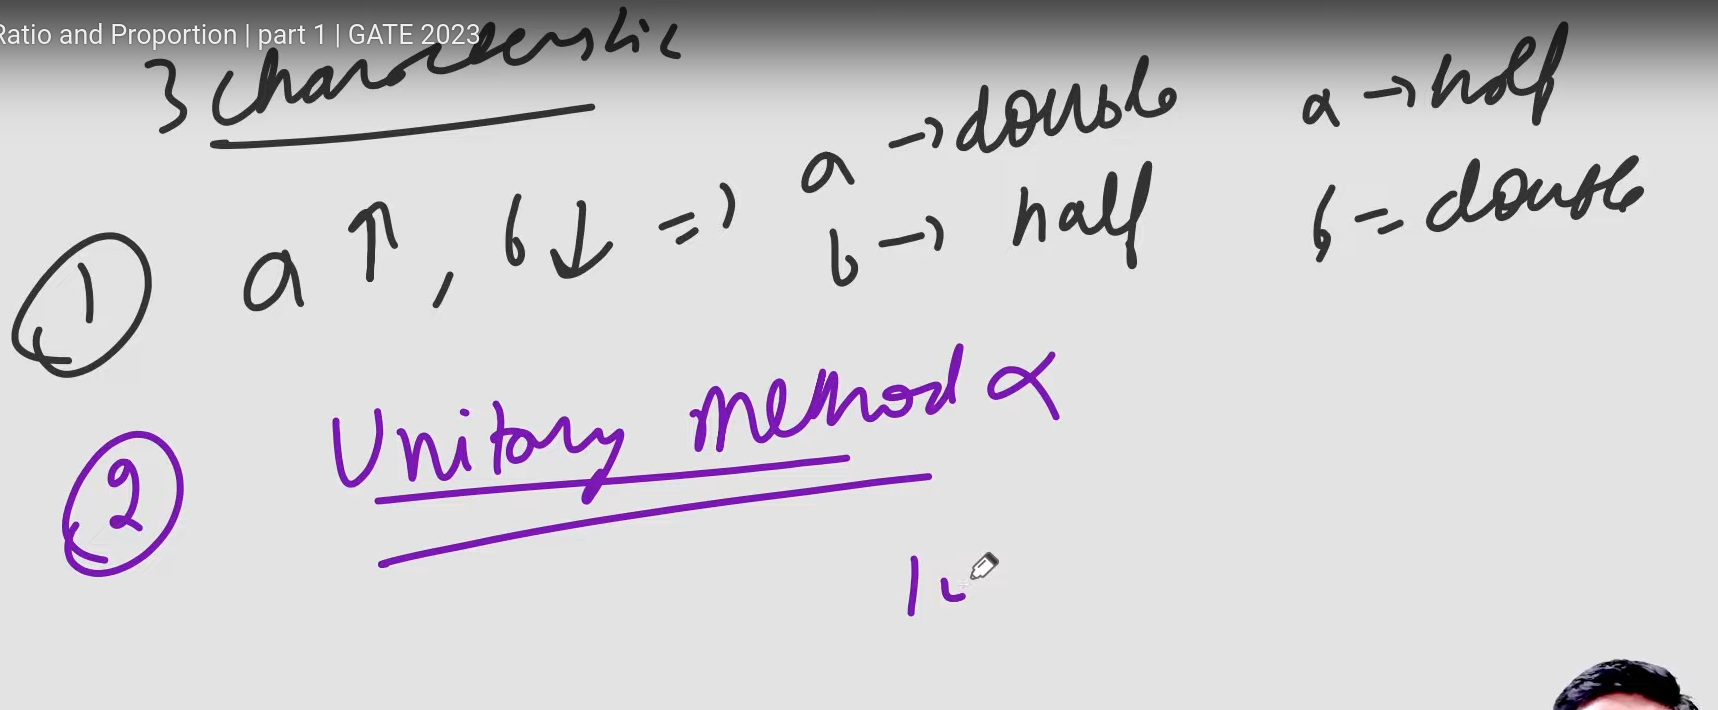 Ratio and Proportion | part 1 | GATE 2023
3 characteristic
① a ↑, b ↓ => a → double a → half
b → half b = double
② Unitary Method ∝
1